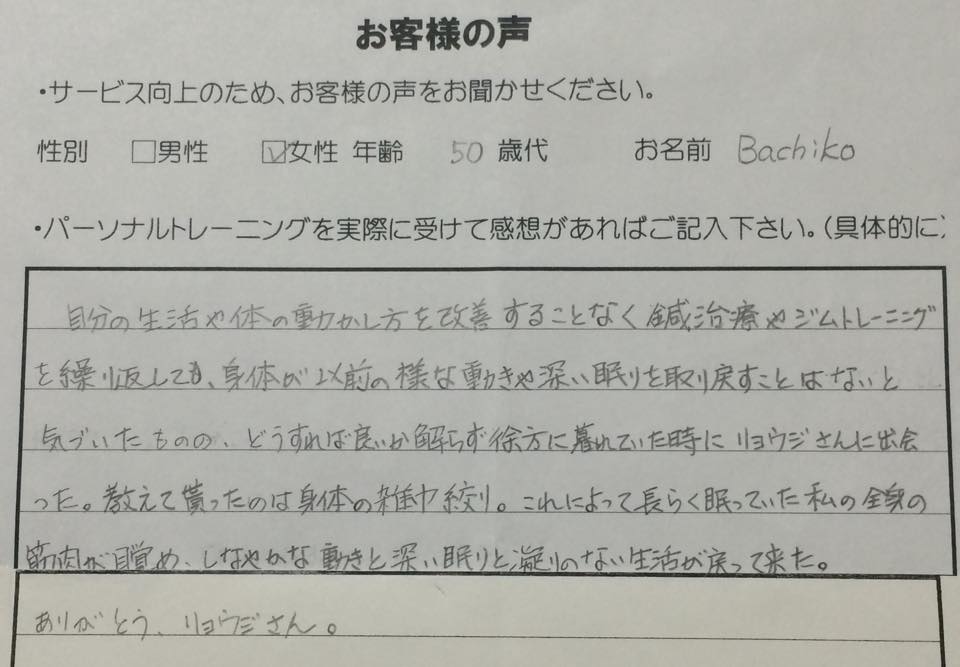 お客様の声
・サービス向上のため、お客様の声をお聞かせください。
性別 □男性 ☑女性 年齢 50 歳代 お名前 Bachiko
・パーソナルトレーニングを実際に受けて感想があればご記入下さい。(具体的に
自分の生活や体の動かし方を改善することなく鍼治療やジムトレーニング
を繰り返しても、身体が以前の様な動きや深い眠りを取り戻すことはないと
気づいたものの、どうすれば良いか解らず徐方に暮れていた時にリョウジさんに出会
った。教えて貰ったのは身体の雑巾絞り。これによって長らく眠っていた私の全身の
筋肉が目覚め、しなやかな動きと深い眠りと凝りのない生活が戻って来た。
ありがとう、リョウジさん。